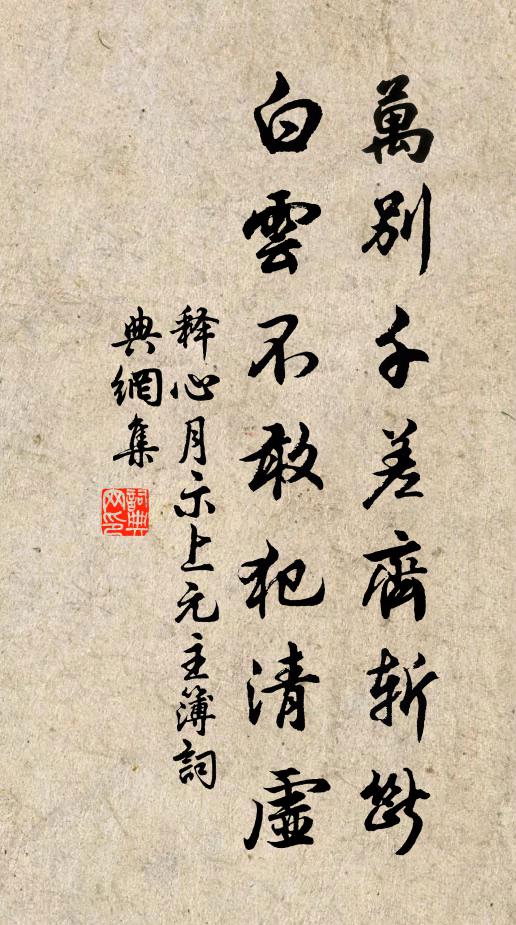 萬別千差齊斬斷
白雲不敢犯清虛
释心月示上元主簿詞
典網集
詞典
网印